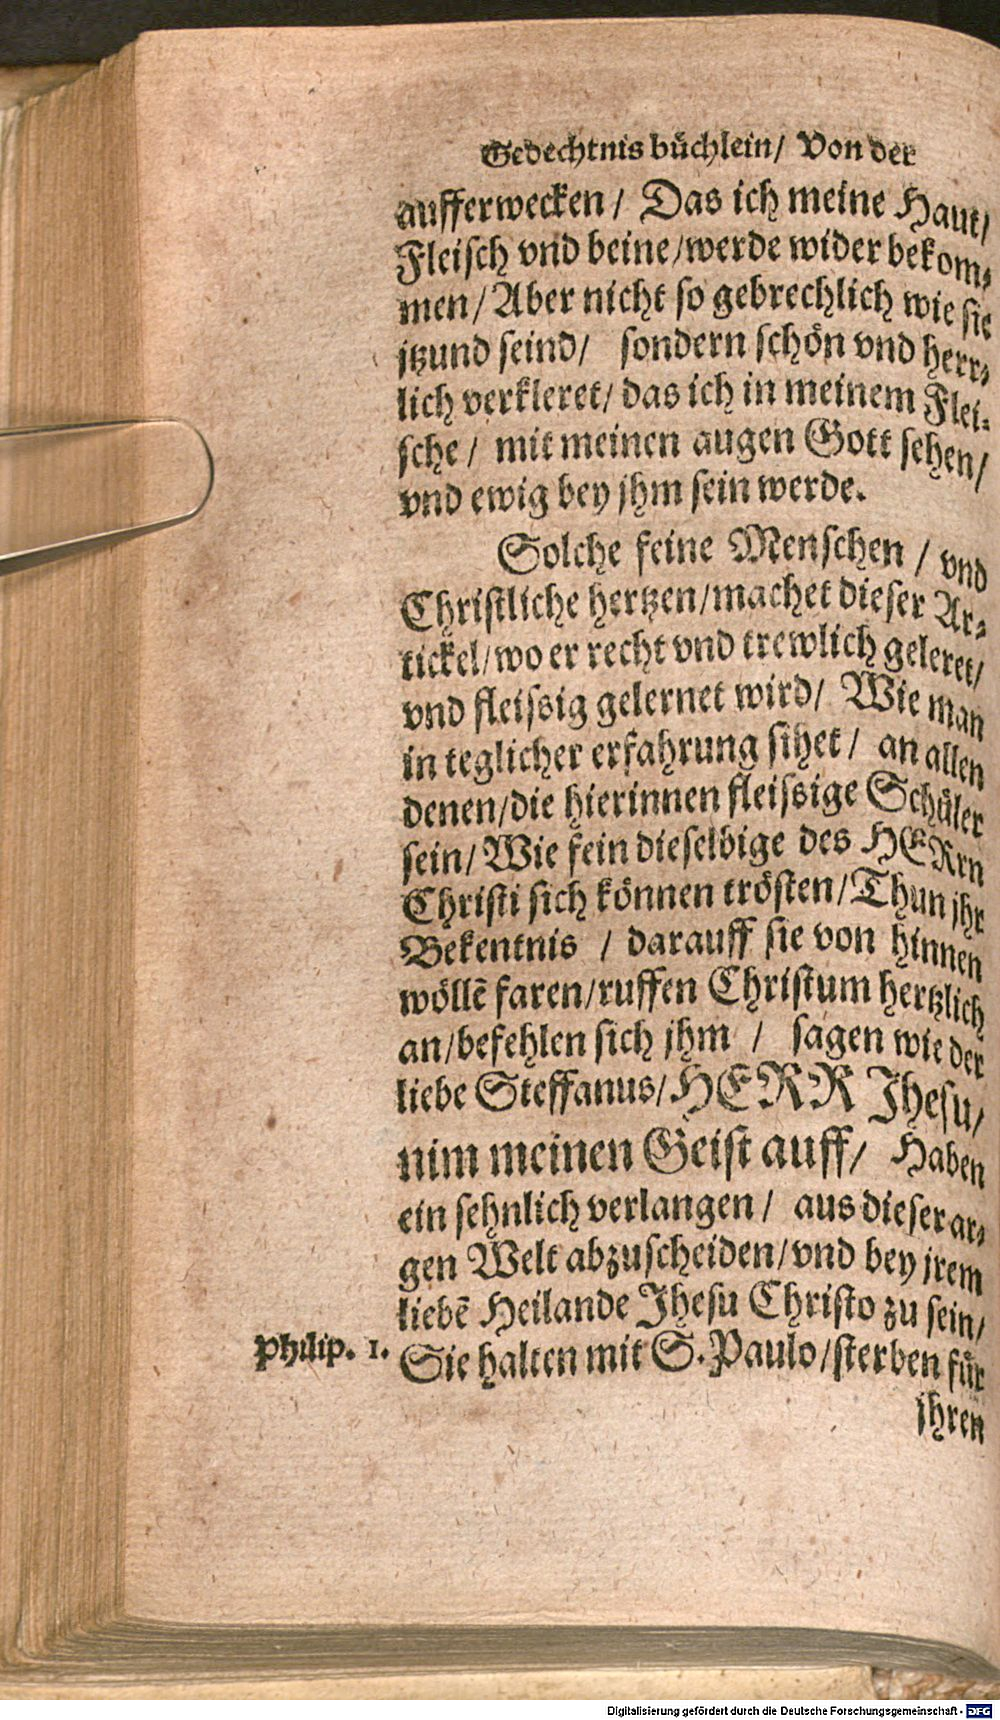 Gedechtnis buͤchlein/ Von der
aufferwecken/ Das ich meine Haut/
Fleisch vnd beine/werde wider bekom⸗
men/ Aber nicht so gebrechlich wie sie
jtzund seind/ sondern schoͤn vnd herr⸗
lich verkleret/ das ich in meinem Flei⸗
sche/ mit meinen augen Gott sehen/
vnd ewig bey jhm sein werde.
Solche feine Menschen/ vnd
Christliche hertzen/machet dieser Ar⸗
tickel/wo er recht vnd trewlich geleret/
vnd fleissig gelernet wird/ Wie man
in teglicher erfahrung sihet/ an allen
denen/die hierinnen fleissige Schuͤler
sein/ Wie fein dieselbige des HERrn
Christi sich koͤnnen troͤsten/ Thun jhr
Bekentnis / darauff sie von hinnen
woͤllē faren/ruffen Christum hertzlich
an/befehlen sich jhm / sagen wie der
liebe Steffanus/HERR Jhesu/
nim meinen Geist auff/ Haben
ein sehnlich verlangen/ aus dieser ar⸗
gen Welt abzuscheiden/vnd bey jrem
liebē Heilande Jhesu Christo zu sein/
Philip. 1. Sie halten mit S. Paulo/sterben fuͤr
jhren
Digitalisierung gefördert durch die Deutsche Forschungsgemeinschaft - DFG